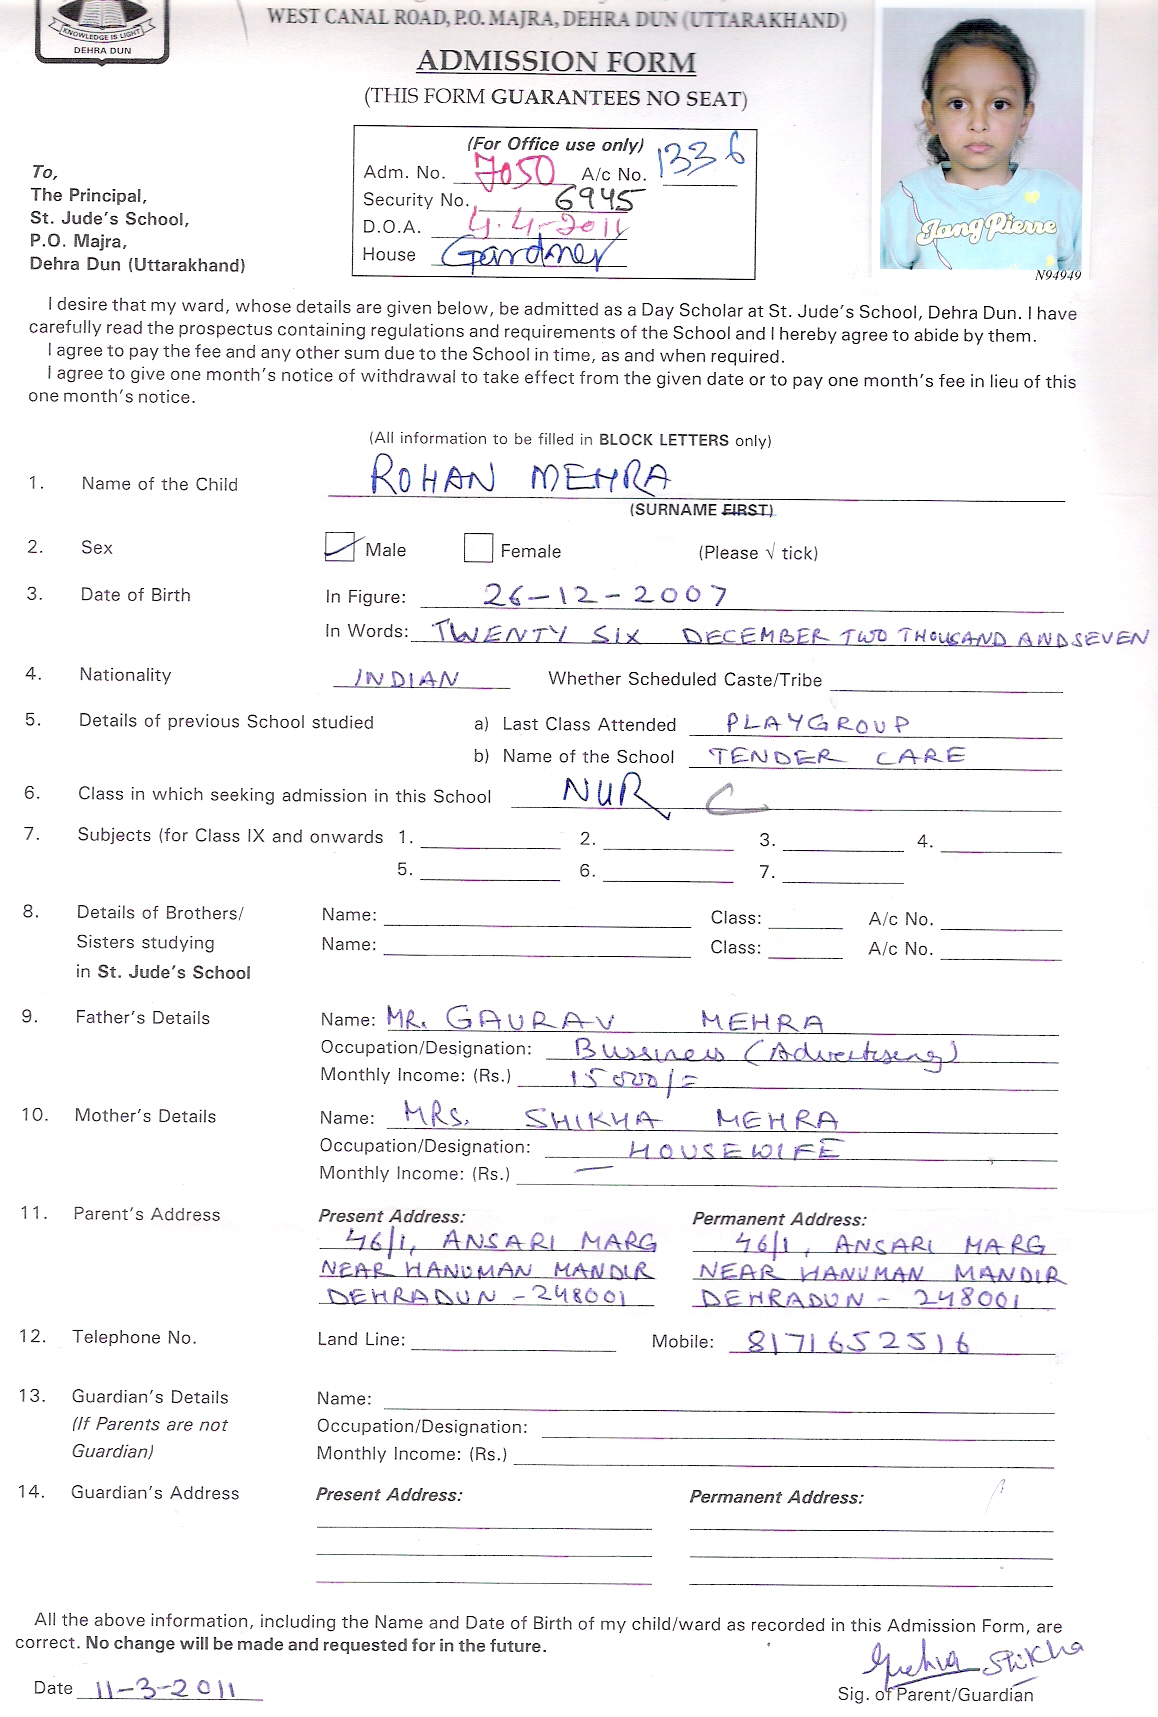 KNOWLEDGE IS LIGHT
DEHRA DUN
WEST CANAL ROAD, P.O. MAJRA, DEHRA DUN (UTTARAKHAND)
ADMISSION FORM
(THIS FORM GUARANTEES NO SEAT)
(For Office use only)
Adm. No. 7050 A/c No. 1336
Security No. 6945
D.O.A. 4.4-2011
House Gardner
To,
The Principal,
St. Jude's School,
P.O. Majra,
Dehra Dun (Uttarakhand)
Jang Pierre
N94949
I desire that my ward, whose details are given below, be admitted as a Day Scholar at St. Jude's School, Dehra Dun. I have
carefully read the prospectus containing regulations and requirements of the School and I hereby agree to abide by them.
I agree to pay the fee and any other sum due to the School in time, as and when required.
I agree to give one month's notice of withdrawal to take effect from the given date or to pay one month's fee in lieu of this
one month's notice.
(All information to be filled in BLOCK LETTERS only)
1. Name of the Child ROHAN MEHRA
(SURNAME FIRST)
2. Sex Male Female (Please √ tick)
3. Date of Birth In Figure: 26-12-2007
In Words: TWENTY SIX DECEMBER TWO THOUSAND AND SEVEN
4. Nationality INDIAN Whether Scheduled Caste/Tribe
5. Details of previous School studied a) Last Class Attended PLAYGROUP
b) Name of the School TENDER CARE
6. Class in which seeking admission in this School NUR C
7. Subjects (for Class IX and onwards 1. 2. 3. 4.
5. 6. 7.
8. Details of Brothers/ Name: Class: A/c No.
Sisters studying Name: Class: A/c No.
in St. Jude's School
9. Father's Details Name: MR. GAURAV MEHRA
Occupation/Designation: Bussiness (Advertising)
Monthly Income: (Rs.) 15000/=
10. Mother's Details Name: MRS. SHIKHA MEHRA
Occupation/Designation: HOUSEWIFE
Monthly Income: (Rs.) —
11. Parent's Address Present Address: Permanent Address:
46/1, ANSARI MARG 46/1, ANSARI MARG
NEAR HANUMAN MANDIR NEAR HANUMAN MANDIR
DEHRADUN - 248001 DEHRADUN - 248001
12. Telephone No. Land Line: Mobile: 8171652516
13. Guardian's Details Name:
(If Parents are not Occupation/Designation:
Guardian) Monthly Income: (Rs.)
14. Guardian's Address Present Address: Permanent Address:
All the above information, including the Name and Date of Birth of my child/ward as recorded in this Admission Form, are
correct. No change will be made and requested for in the future.
Mehra Shikha
Date 11-3-2011
Sig. of Parent/Guardian